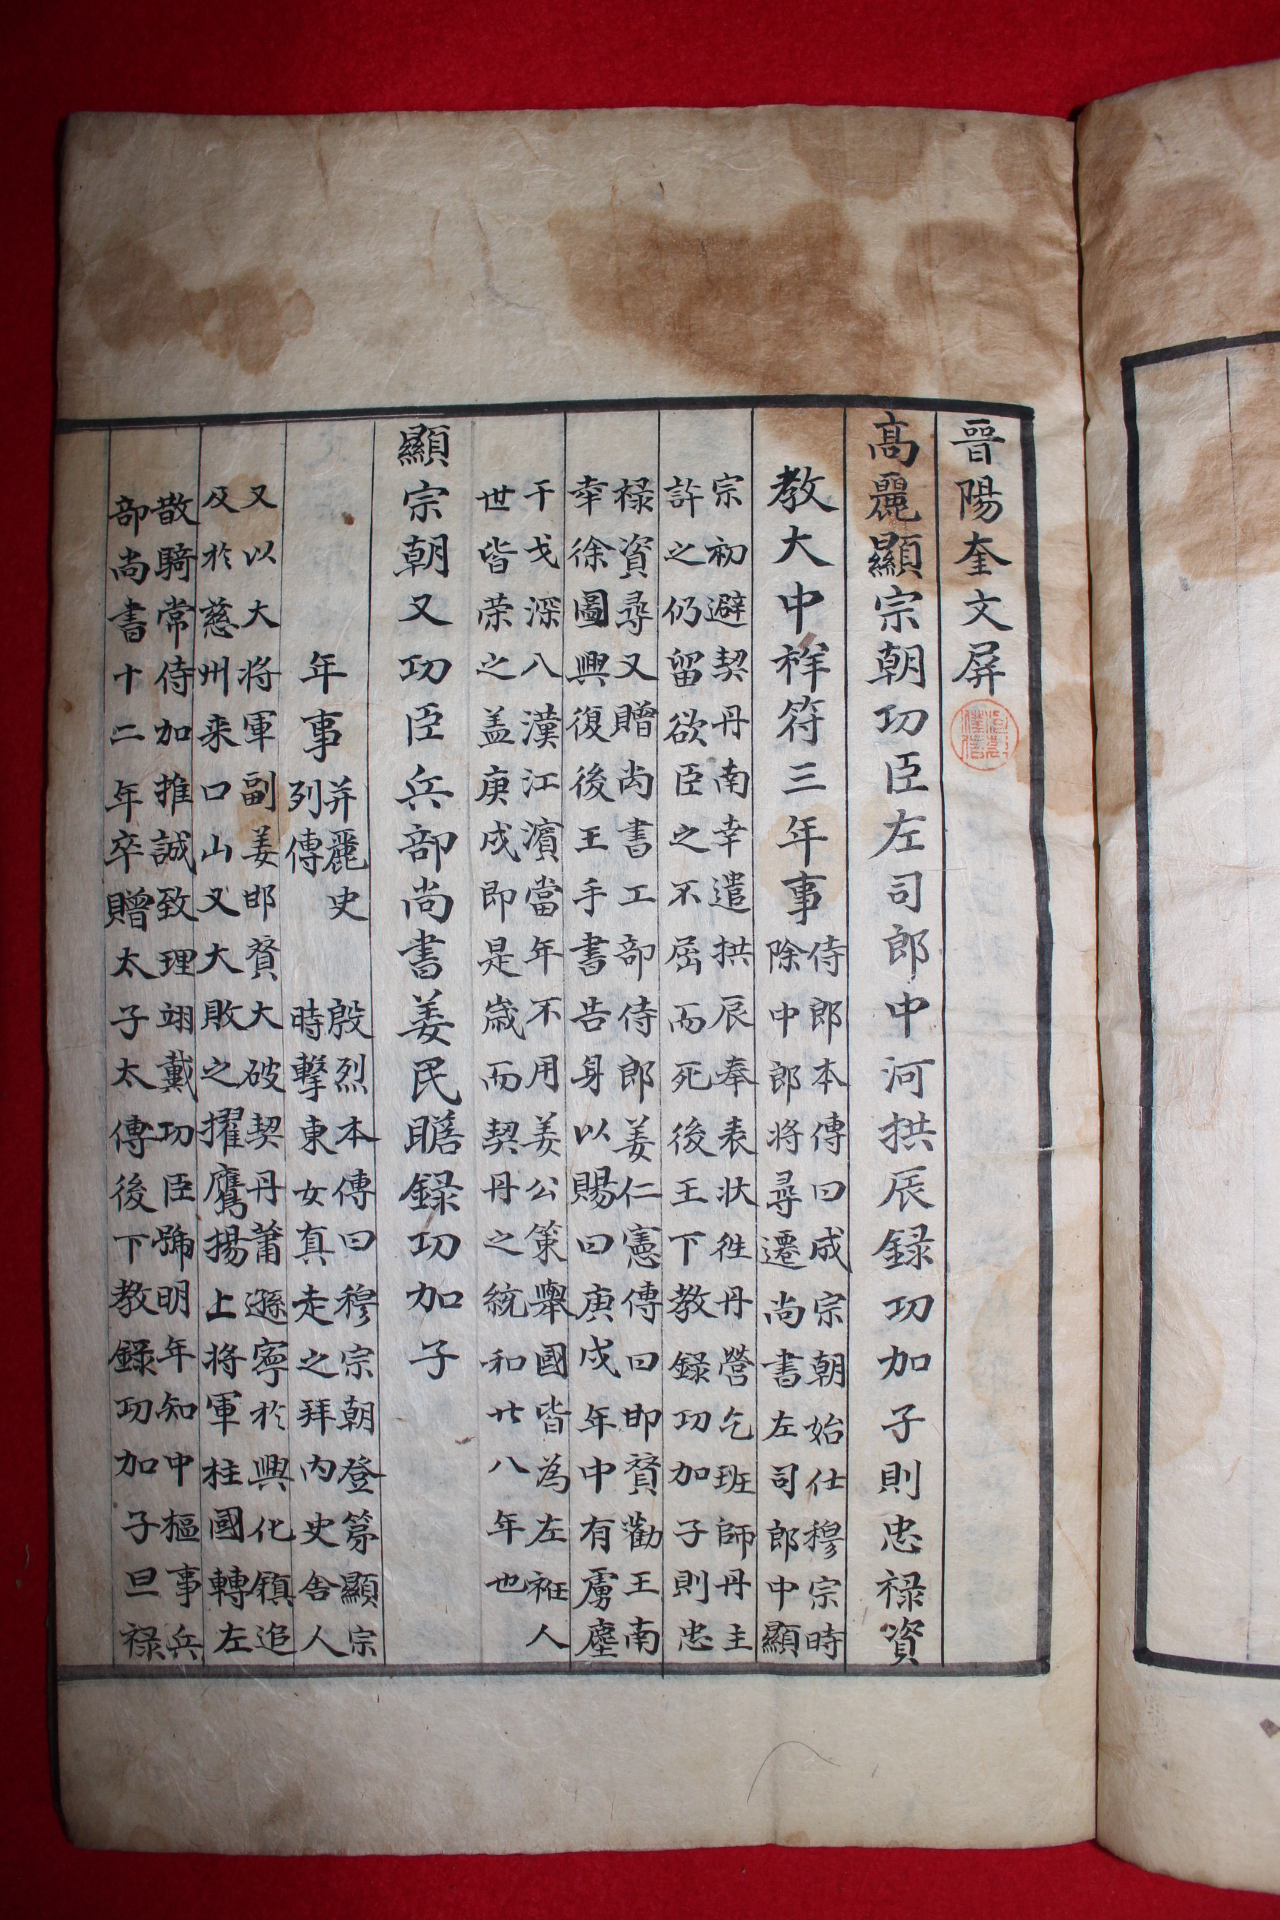 晋陽奎文屏
高麗顯宗朝功臣左司郎中河拱辰録功加子則忠禄資
教大中祥符三年事
侍郎本傳曰成宗朝始仕穆宗時
除中郎将尋遷尚書左司郎中顯
宗初避契丹南幸遣拱辰奉表状徃丹營乞班師丹主
許之仍留欲臣之不屈而死後王下教録功加子則忠
禄資尋又贈尚書工部侍郎姜仁憲傳曰邯贇勸王南
幸徐圖興復後王手書告身以賜曰庚戌年中有虜塵
干戈深入漢江濱當年不用姜公策舉國皆為左衽人
世皆荣之盖庚戌即是歲而契丹之統和廿八年也
顯宗朝又功臣兵部尚書姜民瞻録功加子
年事
并麗史
列傳
殷烈本傳曰穆宗朝登第顯宗
時擊東女真走之拜内史舍人
又以大将軍副姜邯贇大破契丹蕭遜寧於興化鎮追
及於慈州来口山又大敗之擢鷹揚上将軍柱國轉左
散騎常侍加推誠致理翊戴功臣號明年知中樞事兵
部尚書十二年卒贈太子太傅後下教録功加子旦禄